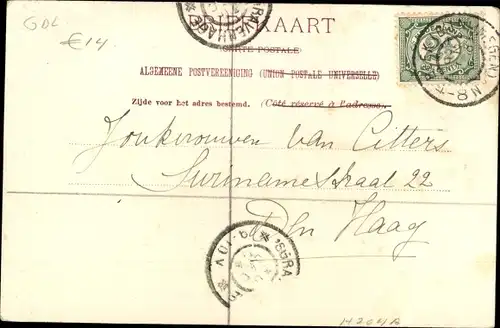 GDL
€14
'SGRAVENHAGE
KAART
CARTE POSTALE
ALGEMEENE POSTVEREENIGING (UNION POSTALE UNIVERSELLE)
Zijde voor het adres bestemd. (Côté réservé à l'adresse.
Jonkvrouwen Van Citters
Surinamestraat 22
Den Haag
'SGRA
9-10V
14204A